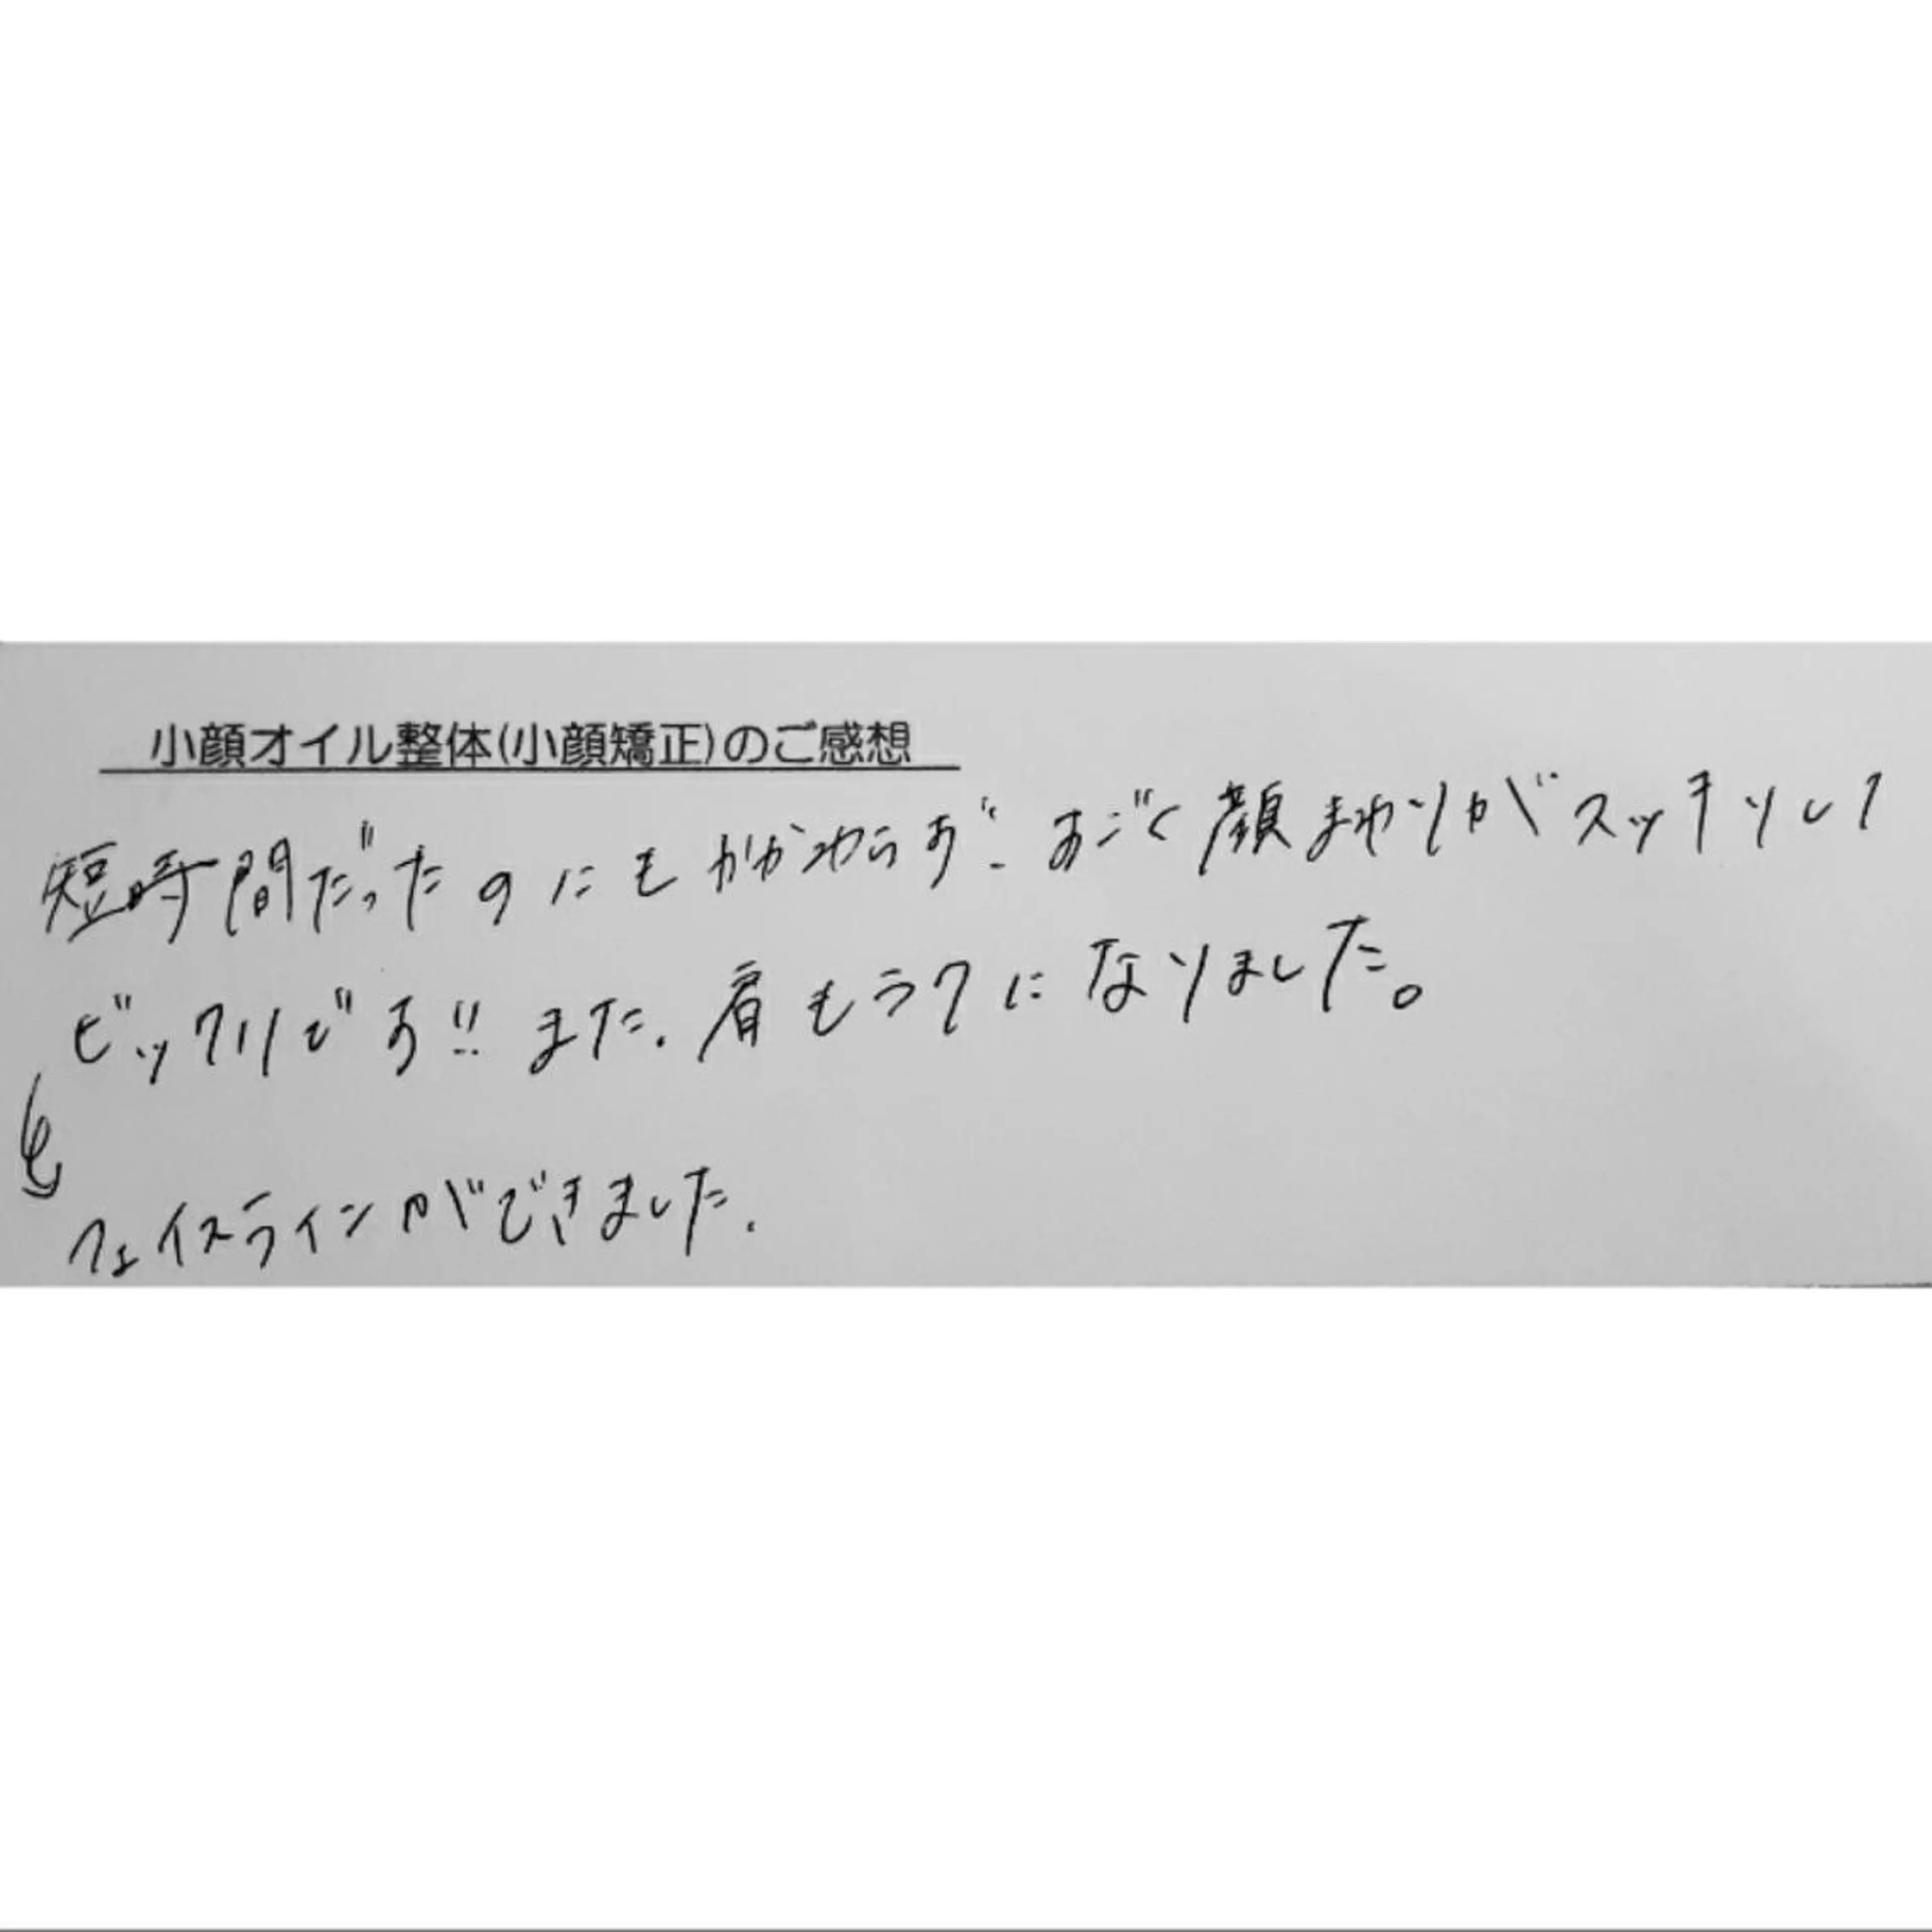 小顔オイル整体(小顔矯正)のご感想
短時間だったのにもかかわらず、すごく顔まわりがスッキリして
ビックリです!! また、肩もラクになりました。
フェイスラインができました.